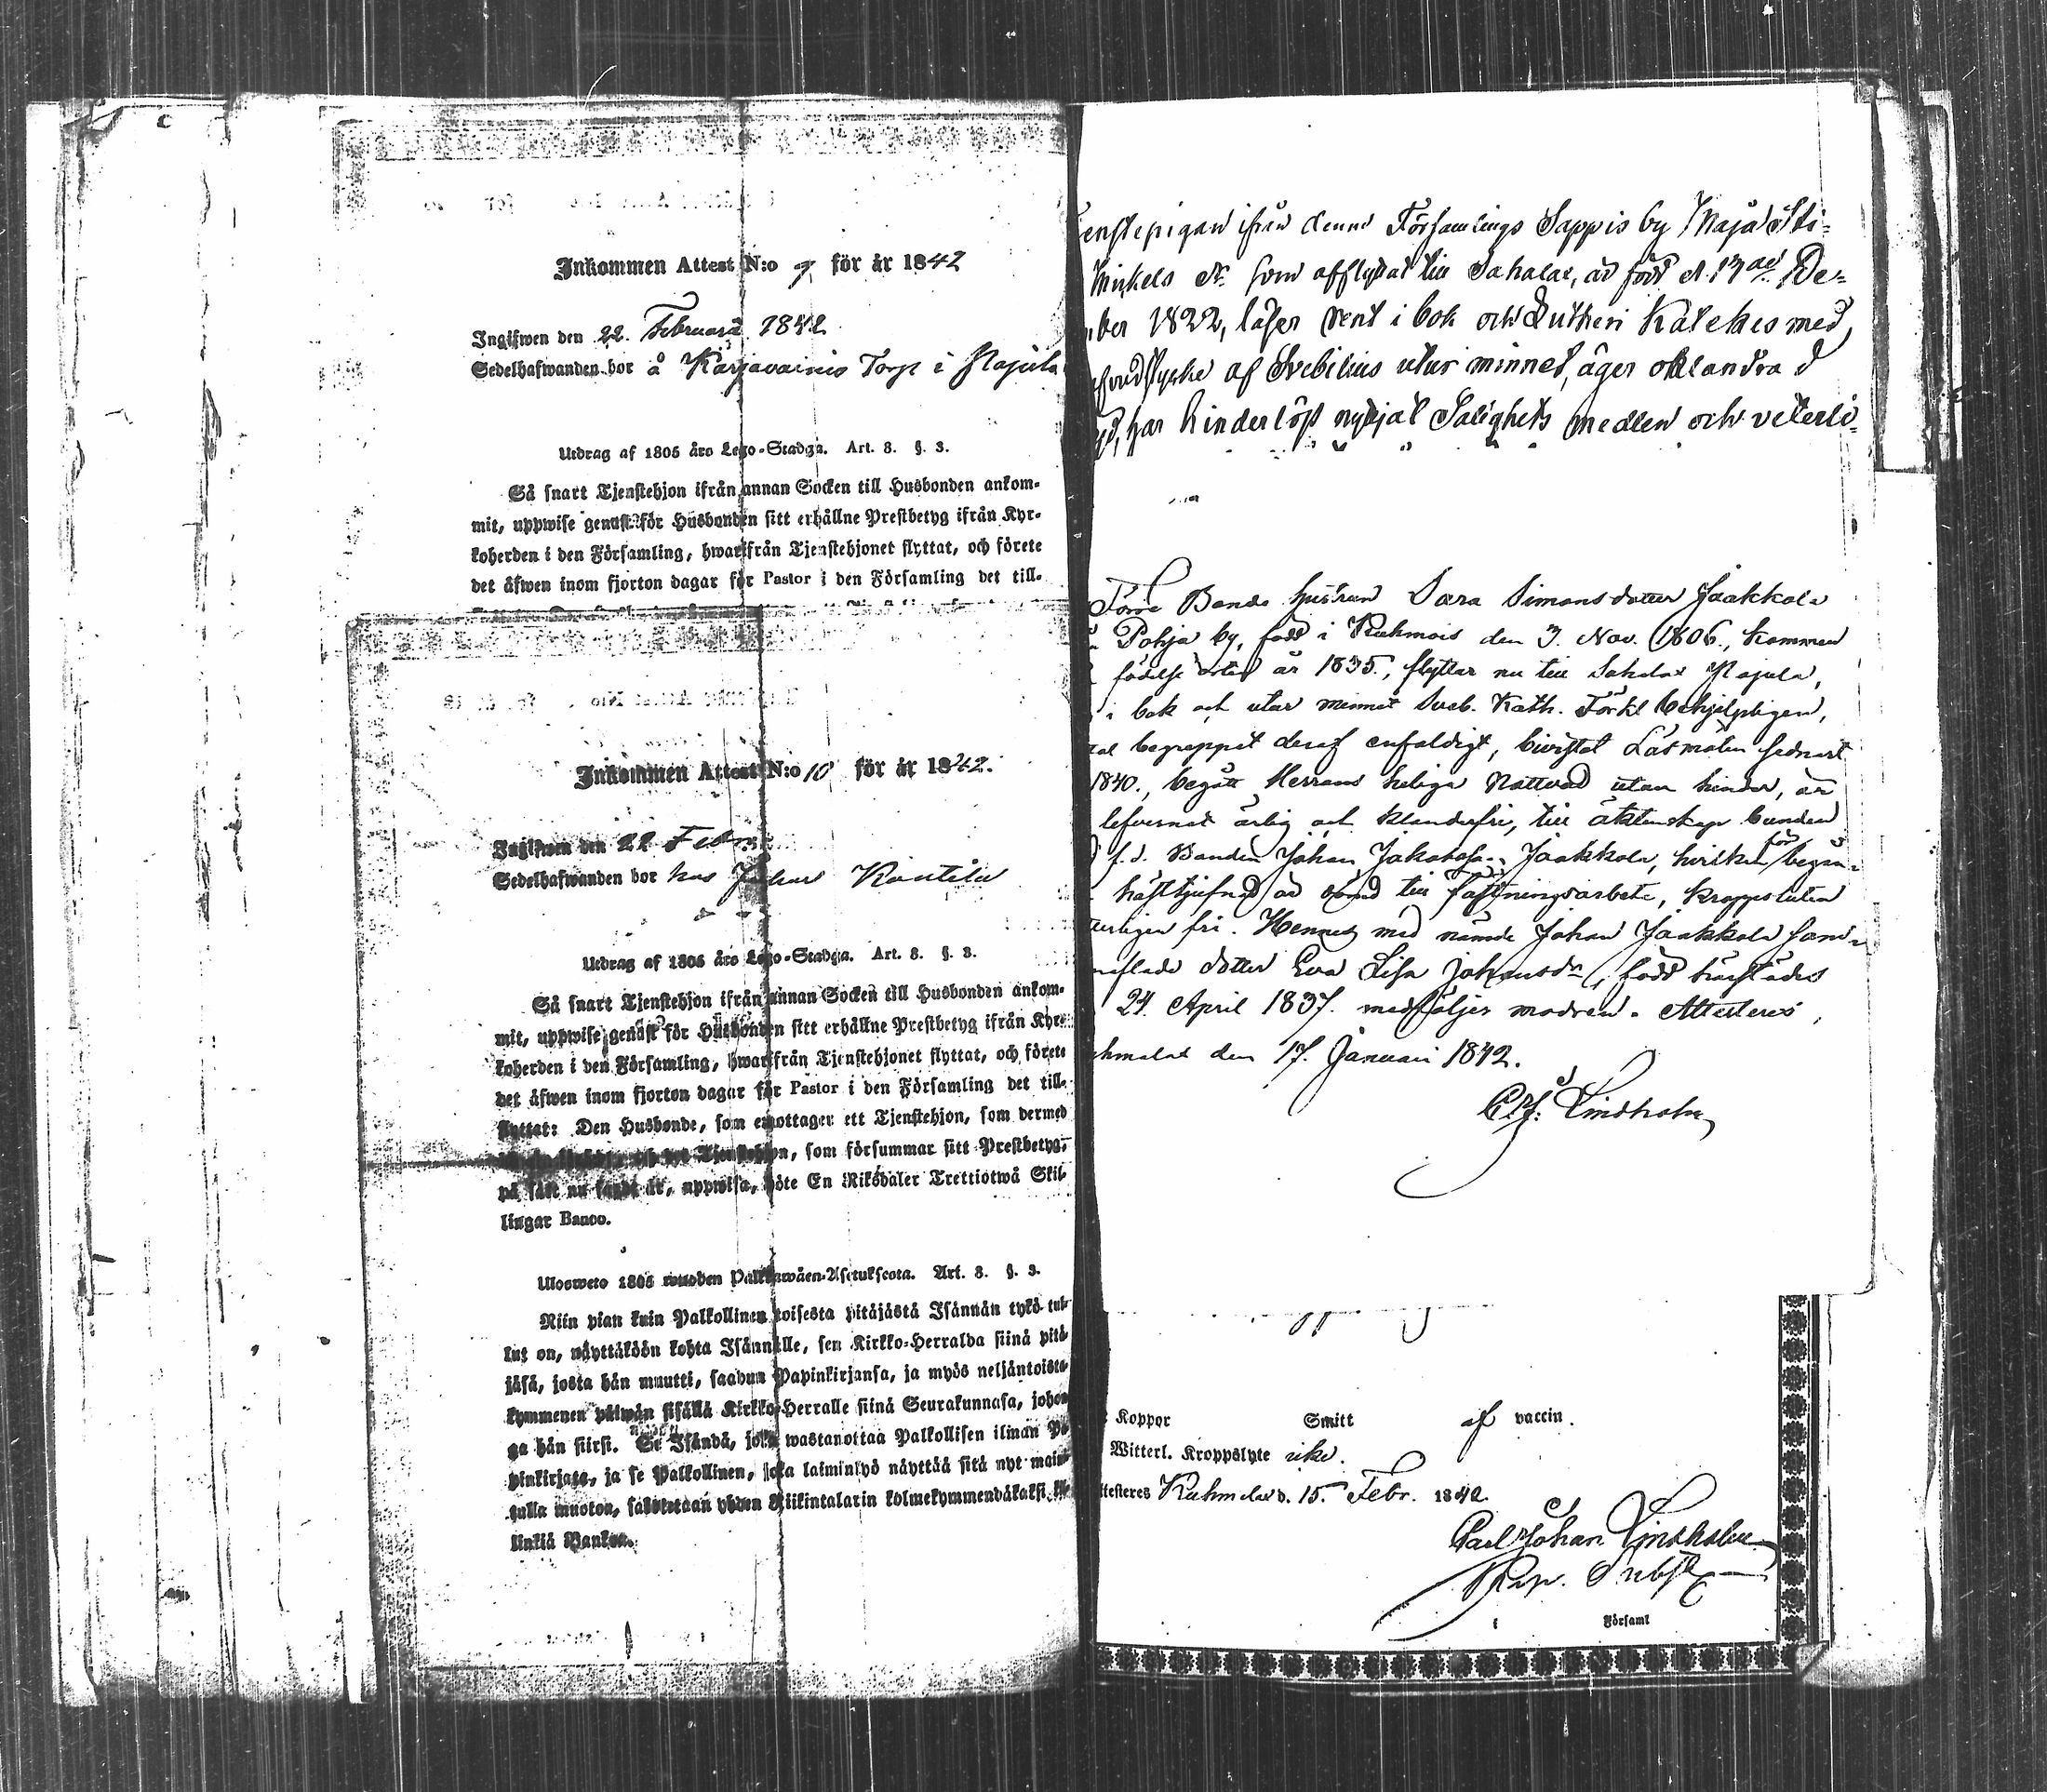 Inkommen Attest N:o 9 för år 1842
Ingifwen den 22. Februari 1842
Sedelhafwanden bor å Karjavainis Torp i Pajula
Utdrag af 1805 års Lego-Stadga. Art. 8. §. 3.
Så snart Tjenstehjon ifrån annan Socken till Husbonden ankom-
mit, uppwise genast för Husbonden sitt erhållne Prestbetyg ifrån Kyr-
koherden i den Församling, hwarifrån Tjenstehjonet flyttat, och förete
det äfwen inom fjorton dagar för Pastor i den Församling det till-
Inkommen Attest N:o 10 för år 1842.
Ingifwen den 22 Febr.
Sedelhafwanden bor hos Johan Kantila
Utdrag af 1805 års Lego-Stadga. Art. 8. §. 3.
Så snart Tjenstehjon ifrån annan Socken till Husbonden ankom-
mit, uppwise genast för Husbonden sitt erhållne Prestbetyg ifrån Kyr-
koherden i den Församling, hwarifrån Tjenstehjonet flyttat, och förete
det äfwen inom fjorton dagar för Pastor i den Församling det till-
flyttat: Den Husbonde, som emottager ett Tjenstehjon, som dermed
Tjenstehjon, som försummar sitt Prestbetyg,
på sätt nu sagdt är, uppwisa, böte En Riksdaler Trettiotwå Skil-
lingar Banco.
Ulosweto 1805 wuoden Palkkawäen-Asetuksesta. Art. 8. §. 3.
Niin pian kuin Palkollinen toisesta pitäjästä Isännän tykö tul-
lut on, näyttäköön kohta Isännälle, sen Kirkko-Herralda siinä pitä-
jäsä, josta hän muutti, saadun Papinkirjansa, ja myös neljäntoista-
kymmenen päiwän sisällä Kirkko-Herralle siinä Seurakunnasa, johon-
ga hän siirsi. Se Isändä, joka wastanottaa Palkollisen ilman Pa-
pinkirjata, ja se Palkollinen, joka laiminlyö näyttää sitä nyt maini-
tulla muoton, sakotetaan yhden Riikintalarin kolmekymmendäkaksi kil-
linkiä Bankoa.
enstepigan ifrån denne Församlings Sappis by Maja Sti-
Mickels dr. som afflyttat till Sahalax, är född d. 13de De-
ber 1822, läser rent i bok och Lutheri Katekes med
stycke af Svebilius utur minnet, äger oklandrad
har hinderlöst nyttjat Salighets medlen och veterli-
Förre Bonde hustrun Sara Simonsdotter Jaakkola
Pohja by, född i Kuhmois den 3. Nov. 1806., kommen
födelse orten år 1835., flyttar nu till Sahalax Pajula,
i bok och utur minnet Sveb. Kath. Förkl behjelpligen,
begreppet deraf enfaldigt, bivistat Läsmöten sednast
1840., begått Herrans heliga Nattvard utan hinder, är
lefvernet ärlig och klanderfri, till äktenskap bunden
f.d. Bonden Johan Jakobsson Jaakkola, hvilken för begån-
hästtjufnad är dömd till fästningsarbete, kroppslyten
terligen fri. Hennes med nämnde Johan Jaakkola sam-
aflade dotter Eva Lisa Johansdr, född härstädes
24. April 1837. medföljer modren. Attesteras,
hmalax den 17. Januari 1842.
C. J. Lindholm
Koppor Smitt af vaccin.
Witterl. Kroppslyte icke.
ttesteres Kuhmalax d. 15. Febr. 1842.
Carl Johan Lindholm
Kap. Subst
Församl